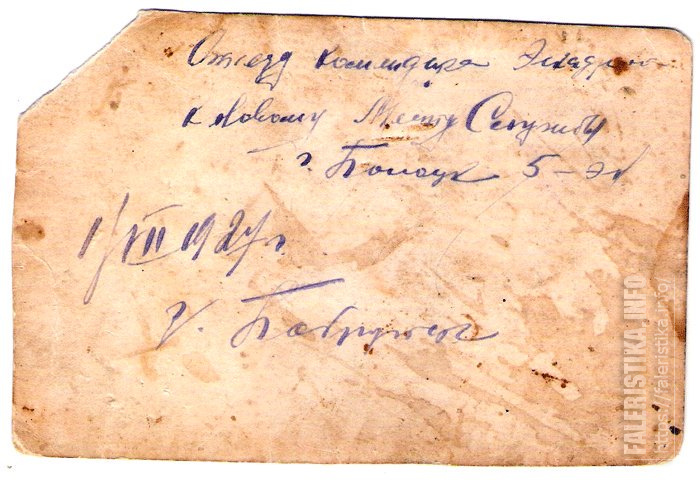 Отъезд командира Эскадрона
к Новому Месту Службы
г. Полоцк 5-эк
1/VII 1927 г
г. Бобруйск
FALERISTIKA.INFO
https://faleristika.info